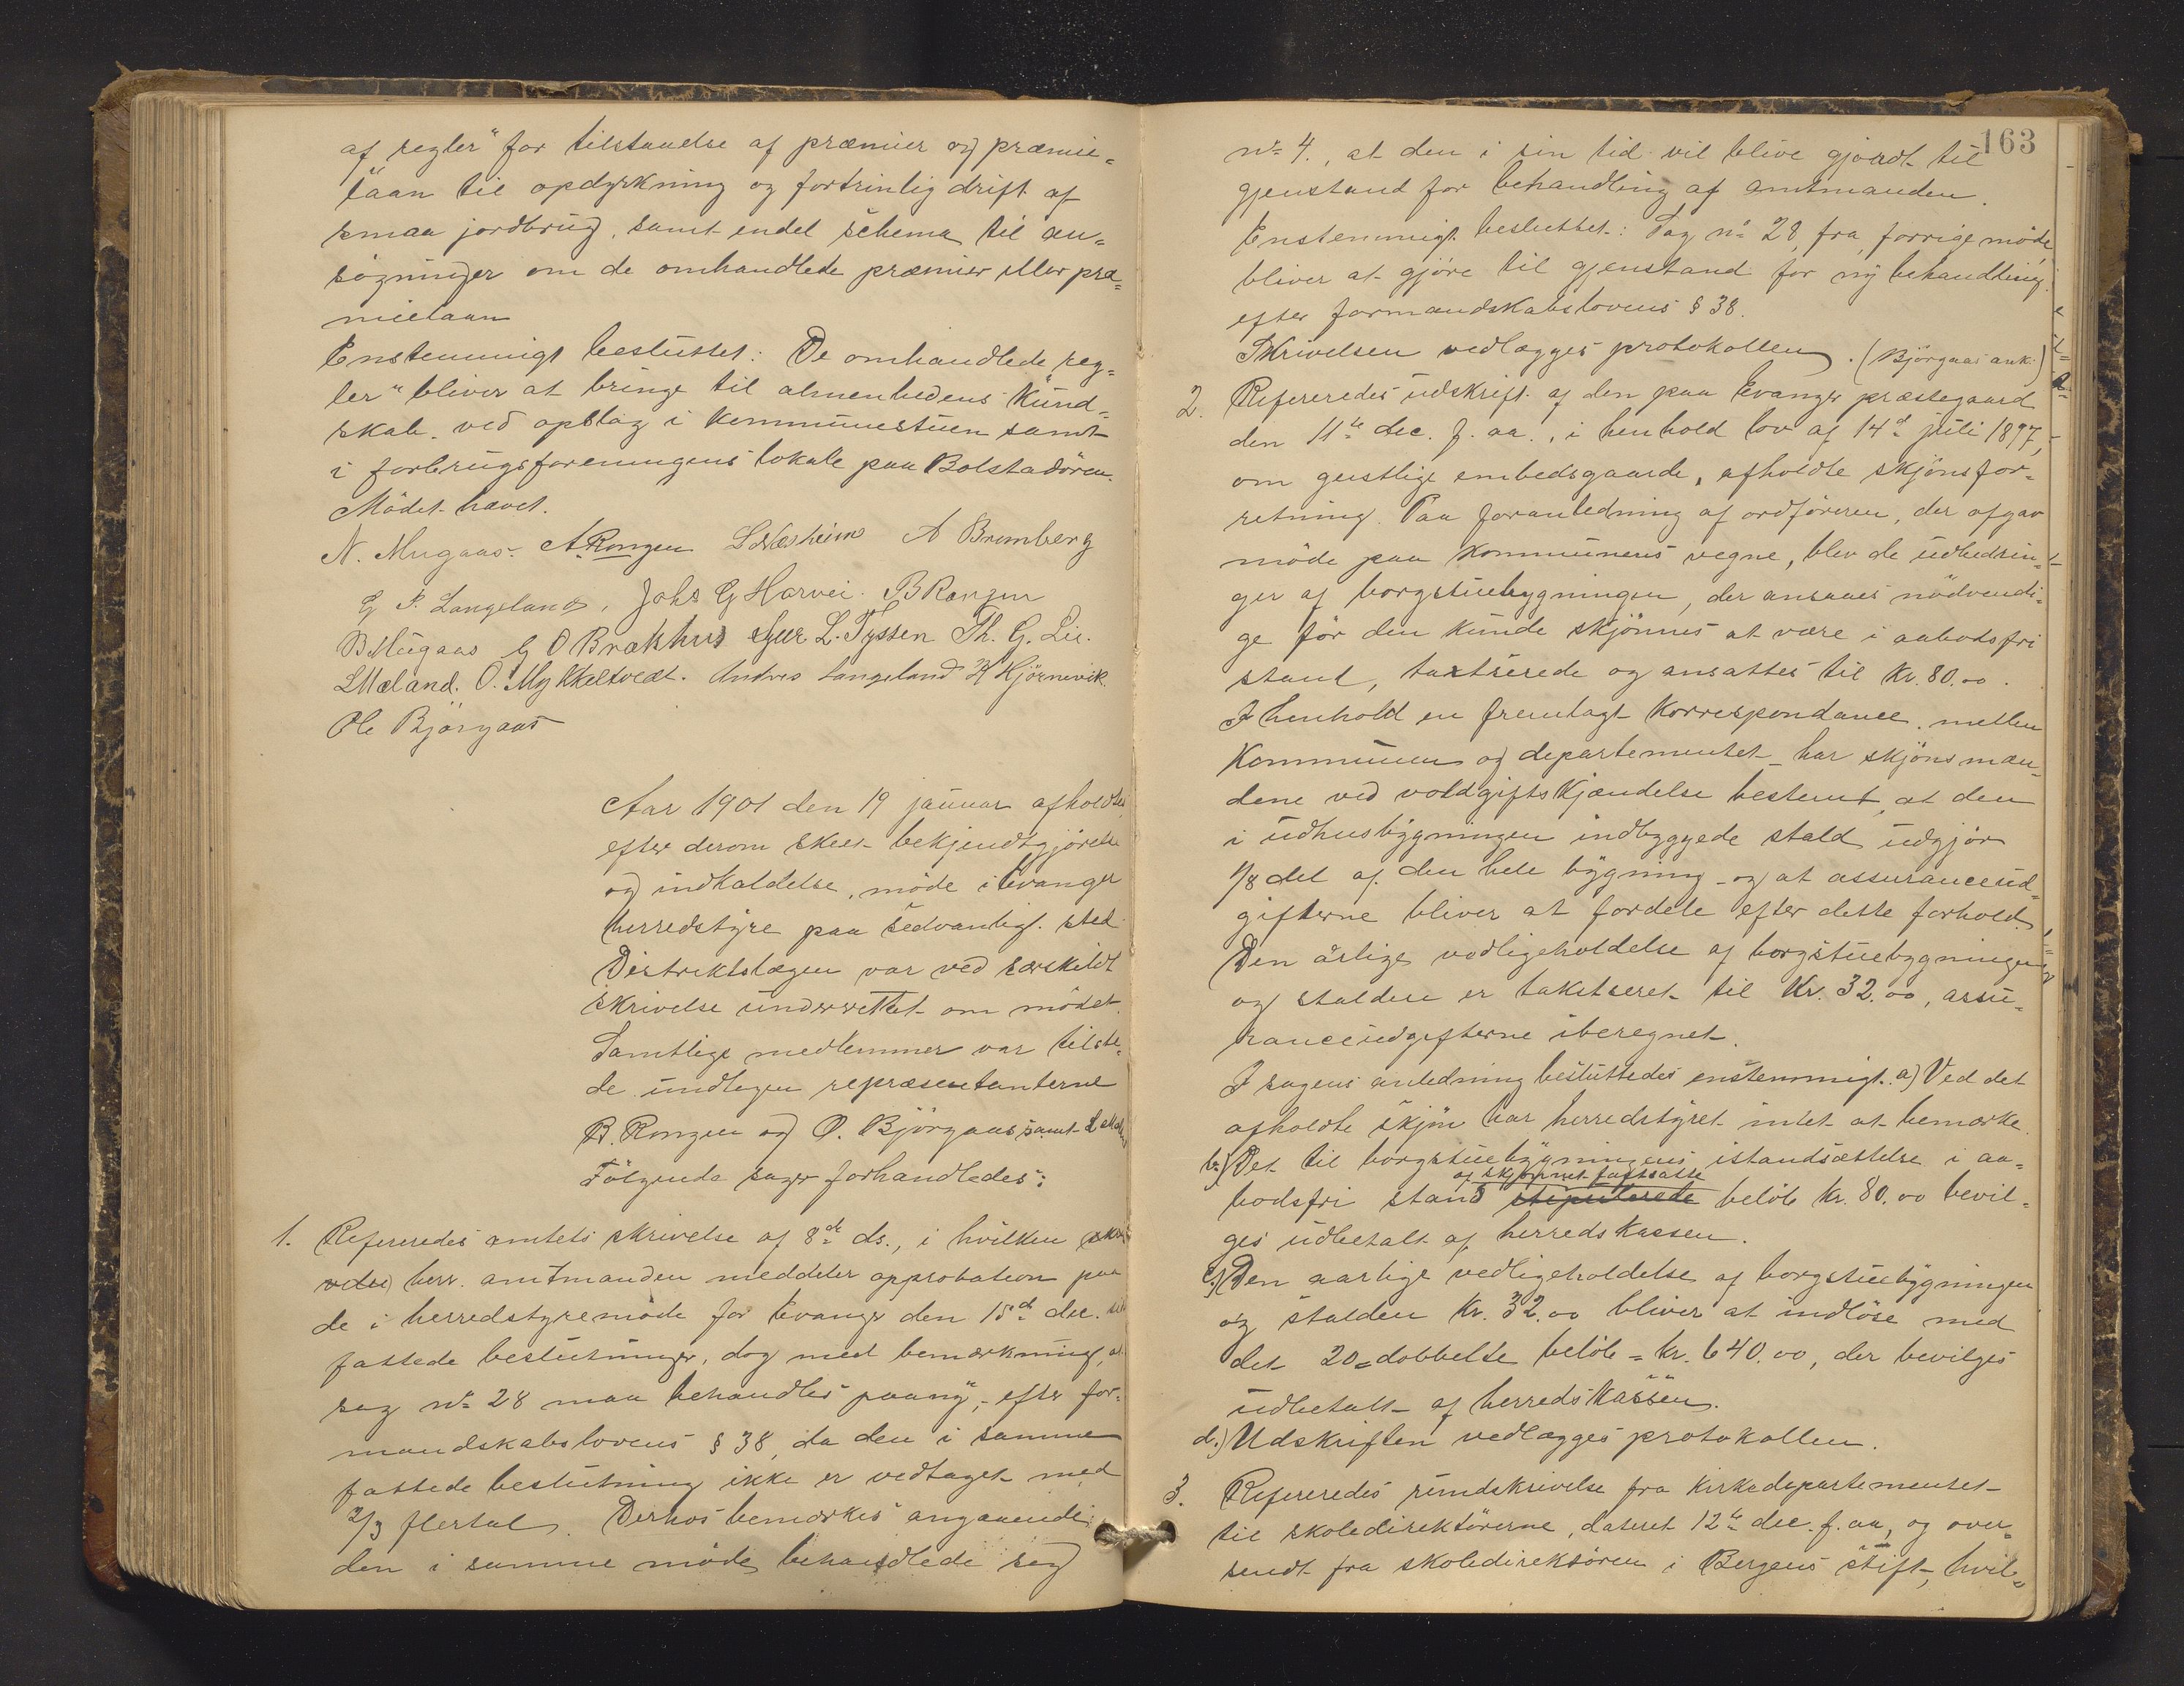 af regler" for tilstaaelse af præmier og præmie=
laan til opdyrkning og fortrinlig drift af
smaa jordbrug, samt endel schema til an=
søgninger om de omhandlede præmier eller præ=
mielaan
Enstemmigt besluttet: De omhandlede reg=
ler" bliver at bringe til almenhedens kund=
skab ved opslag i kommunestuen samt
i forbrugsforeningens lokale paa Bolstadøren.
Mødet hævet.
N. Mugaas. A. Rongen L Næsheim A Bromberg
G P. Langeland, Johs G Horvei. B Rongen
B Mugaas G O Brækhus Sjur L. Tyssen Th. G. Lie.
L Mæland. O. Mykkeltvedt. Andres Langeland K Hjørnevik
Ole Bjørgaas
Aar 1901 den 19 januar afholdtes
efter derom skeet bekjendtgjørelse
og indkaldelse, møde i Evanger
herredstyre paa sedvanligt sted
Distriktslægen var ved særskildt
skrivelse underrettet om mødet.
Samtlige medlemmer var tilste=
de undtagen repræsentanterne
B. Rongen og O. Bjørgaas samt
Følgende sager forhandledes:
1. Refereredes amtets skrivelse af 8de ds., i hvilken
herr. amtmanden meddeler approbation paa
de i herredstyremøde for Evanger den 15de dec.
fattede beslutninger, dog med bemærkning, at
sag no 28 maa behandles paany, efter for=
mandskabslovens § 38, da den i samme
fattede beslutning ikke er vedtaget med
2/3 flertal. Derhos bemærkes angaaende
den i samme møde behandlede sag
163
no 4., at den i sin tid vil blive gjordt til
gjenstand for behandling af amtmanden.
Enstemmigt besluttet: Sag no 28 fra forrige møde
bliver at gjøre til gjenstand for ny behandling
efter formandskabslovens § 38.
Skrivelsen vedlægges protokollen. (Bjørgaas ank.)
2. Refereredes udskrift af den paa Evanger præstegaard
den 11te dec. f. aa., i henhold lov af 14de juli 1897,
om geistlige embedsgaarde, afholdte skjønsfor=
retning. Paa foranledning af ordføreren, der afgav
møde paa kommunens vegne, blev de udbedrin=
ger af borgstuebygningen, der ansaaes nødvendi=
ge før den kunde skjønnes at være i aabodsfri
stand, taxtserede og ansattes til Kr. 80.00.
I henhold en fremlagt korrespondance mellem
Kommunen og departementet har skjønsmæn=
dene ved voldgiftskjændelse bestemt, at den
i udhusbygningen indbyggede stald udgjør
1/8 del af den hele bygning og at assuranceud=
gifterne bliver at fordele efter dette forhold.
Den årlige vedligeholdelse af borgstuebygningen
og stalden er takstseret til Kr. 32.00, assu=
ranceudgifterne iberegnet.
I sagens anledning besluttedes enstemmigt. a) Ved det
afholdte skjøn har herredstyret intet at bemærke.
b.) Det til borgstuebygningens istandsættelse i aa=
af skjønnet fastsatte
bodsfri stand stipulerede beløb kr. 80.00 bevil=
ges udbetalt af herredskassen.
c.) Den aarlige vedligeholdelse af borgstuebygningen
og stalden Kr. 32.00 bliver at indløse med
det 20=dobbelte beløb = kr. 640.00, der bevilges
udbetalt af herredskassen.
d.) Udskriften vedlægges protokollen.
3. Refereredes rundskrivelse fra Kirkedepartementet
til skoledirektørerne, dateret 12te dec. f. aa, og over=
sendt fra skoledirektøren i Bergens stift, hvil=